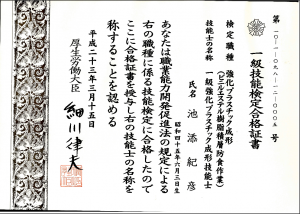 第一〇-一-〇九八-一二-〇〇〇五号
一級技能検定合格証書
検定職種 強化プラスチック成形
(ビニルエステル樹脂積層防食作業)
技能士の名称 一級強化プラスチック成形技能士
氏名 池添紀彦
昭和四十五年六月三日生
あなたは職業能力開発促進法の規定による
右の職種に係る技能検定に合格したので
ここに合格証書を授与し右の技能士の名称を
称することを認める
平成二十三年三月十五日
厚生労働大臣
細川律夫